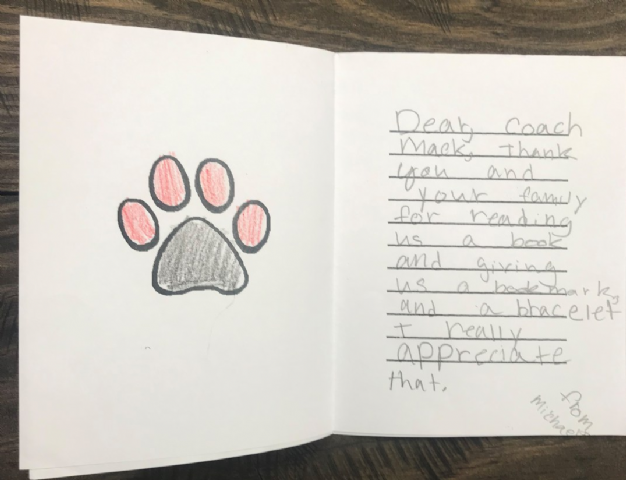 Dear, Coach
Mack, thank
you and
your family
for reading
us a book
and giving
us a bookmark,
and a bracelet
I really
appreciate
that.
from